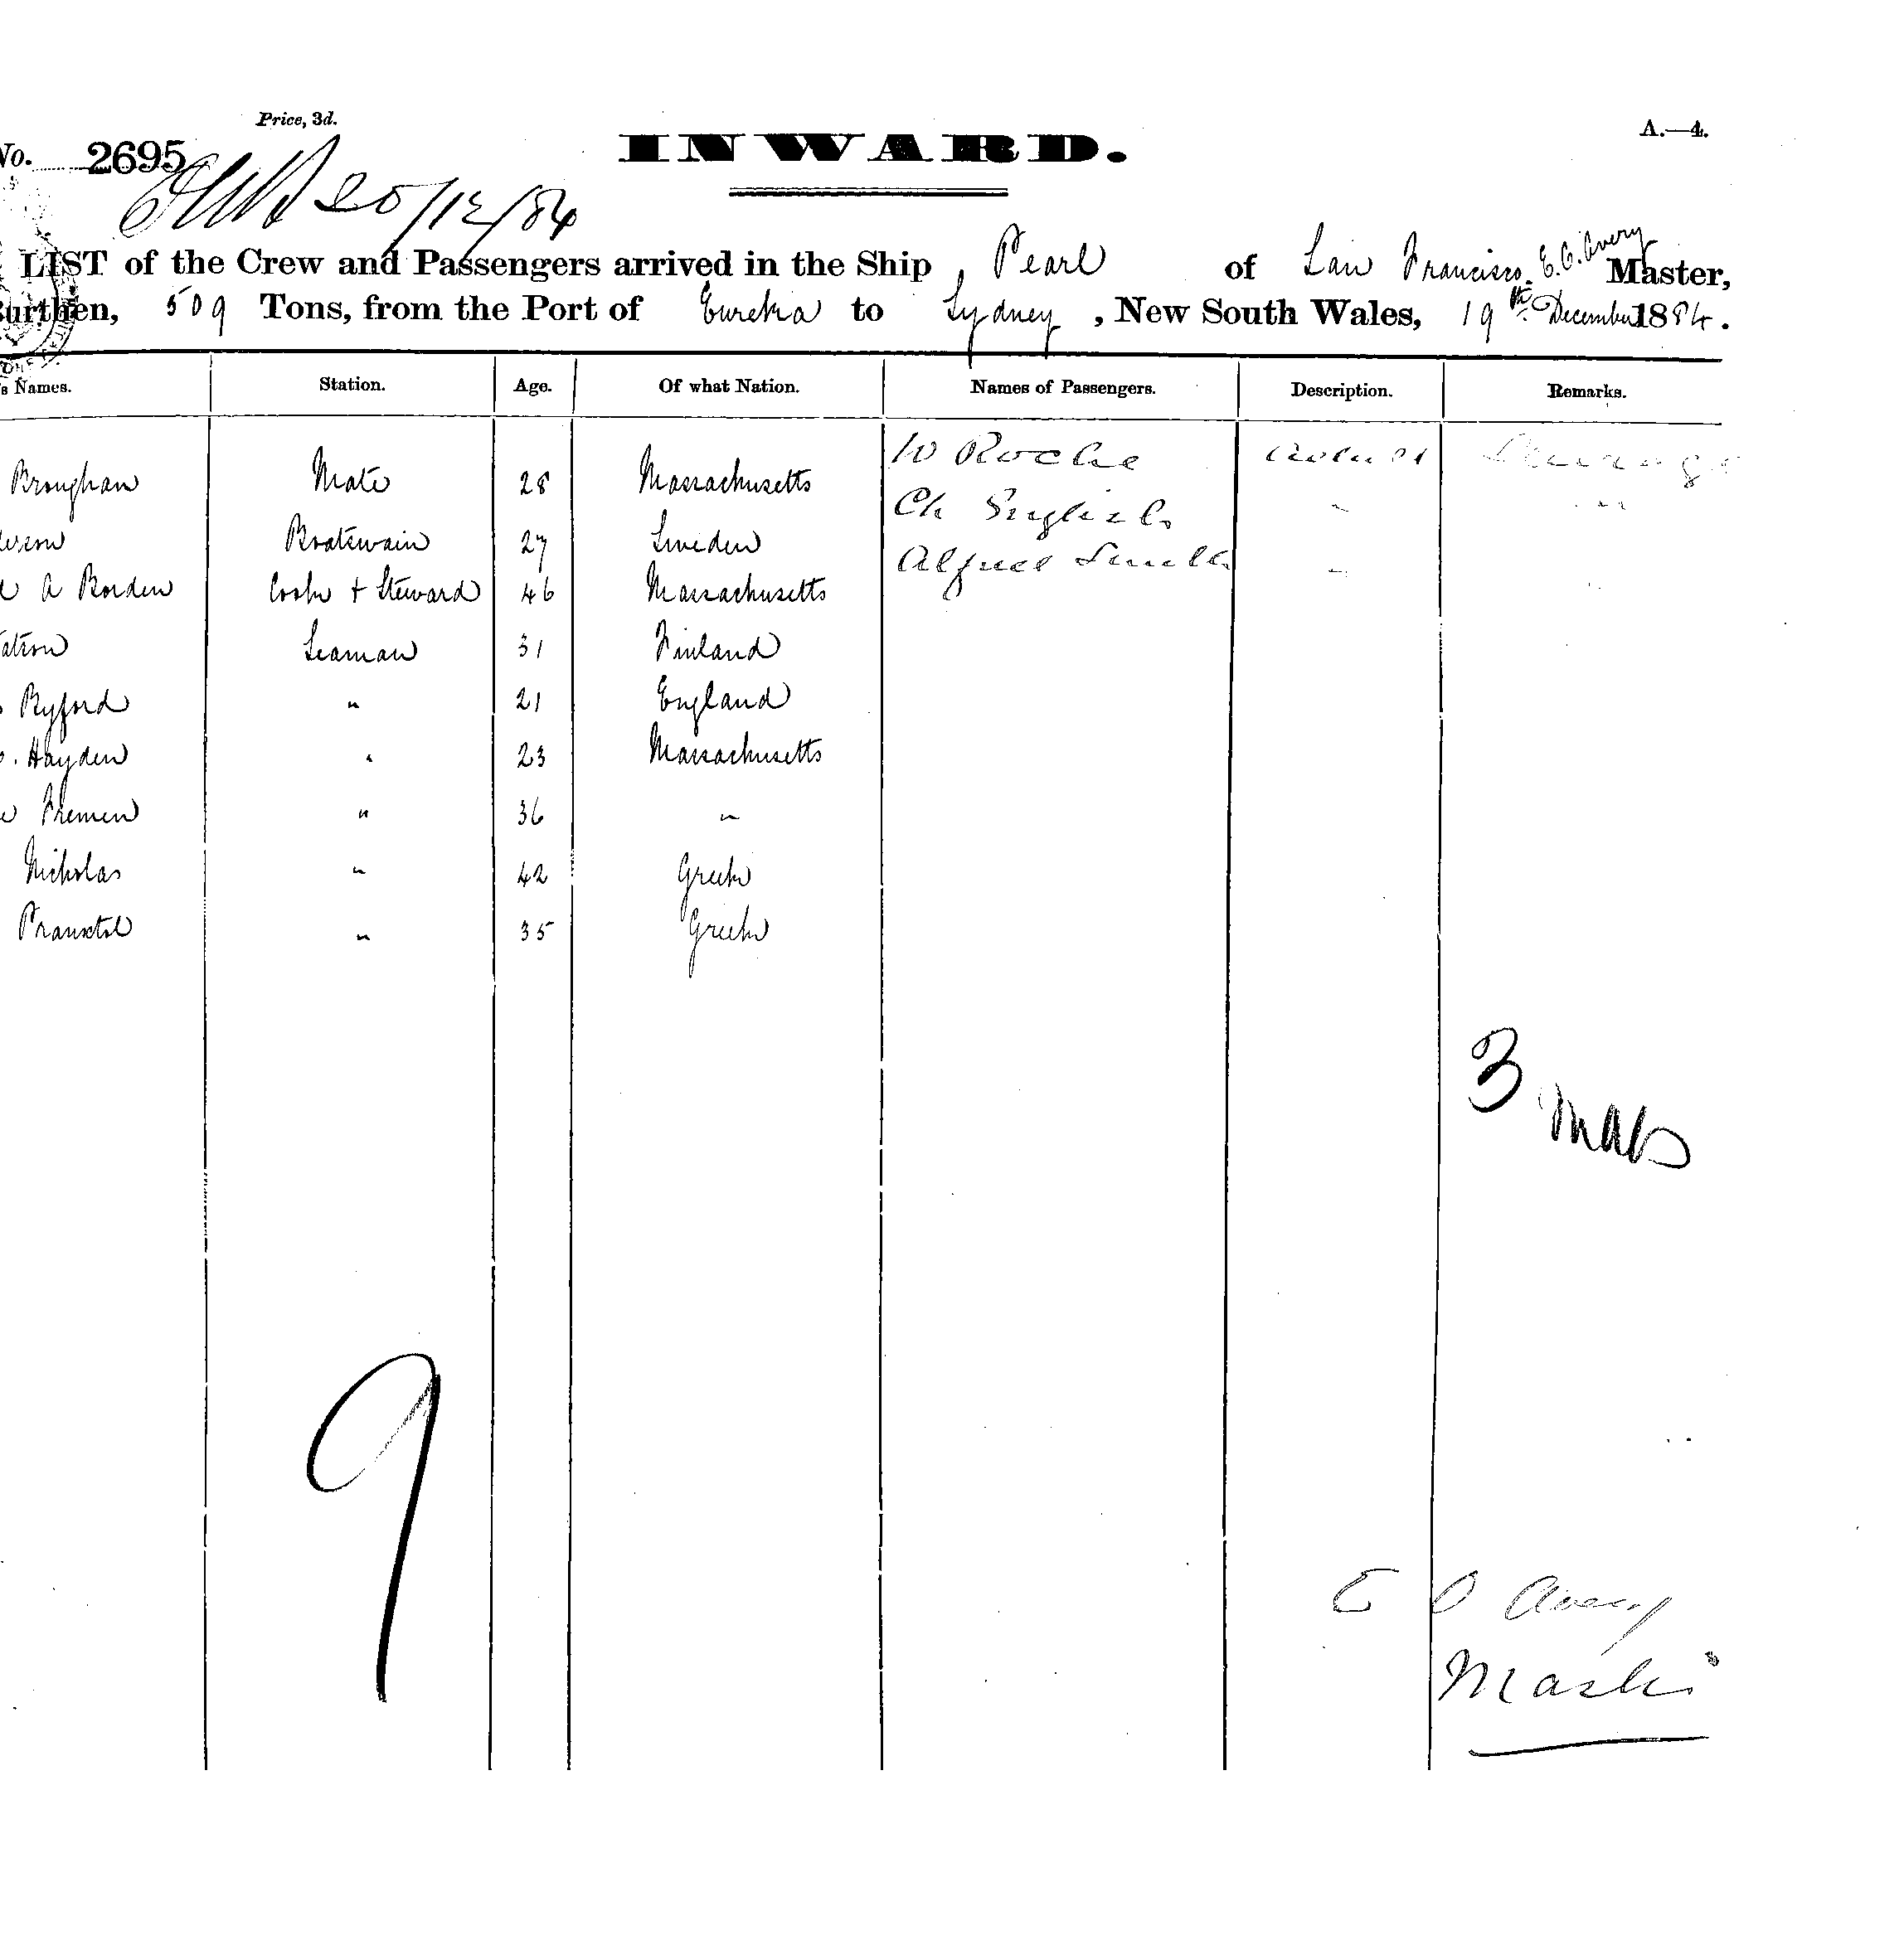 Price, 3d.
INWARD.
A.—4.
No. 2695
20/12/84
LIST of the Crew and Passengers arrived in the Ship , Pearl of San Francisco. E. C. Avery Master,
Burthen, 509 Tons, from the Port of Eureka to Sydney , New South Wales, 19th. December 1884.
s Names. Station. Age. Of what Nation. Names of Passengers. Description. Remarks.
Broughan Mate 28 Massachusetts W Roche Steerage
Boatswain 27 Sweden Ch English " "
a Borden Cook + Steward 46 Massachusetts Alfred Smith "
Seaman 31 Finland
Ryford " 21 England
Hayden " 23 Massachusetts
Fremen " 36 "
Nicholas " 42 Greek
" 35 Greek
3
9
E C Avery
Master